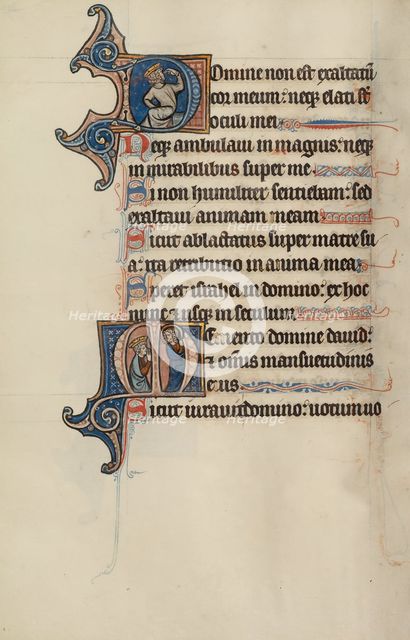 Domine non est exaltatū
cor meum: neq; elati st̄
oculi mei
Neq; ambulaui in magnis: neq;
in mirabilibus super me
Si non humiliter sentiebam: sed
exaltaui animam meam
Sicut ablactatus super matre su
a: ita retributio in anima mea
Speret israhel in domino: ex hoc
nunc & usq; in seculum
Memento domine dauid:
et om̄is mansuetudinis
eius
Sicut iurauit domino: uotum uo